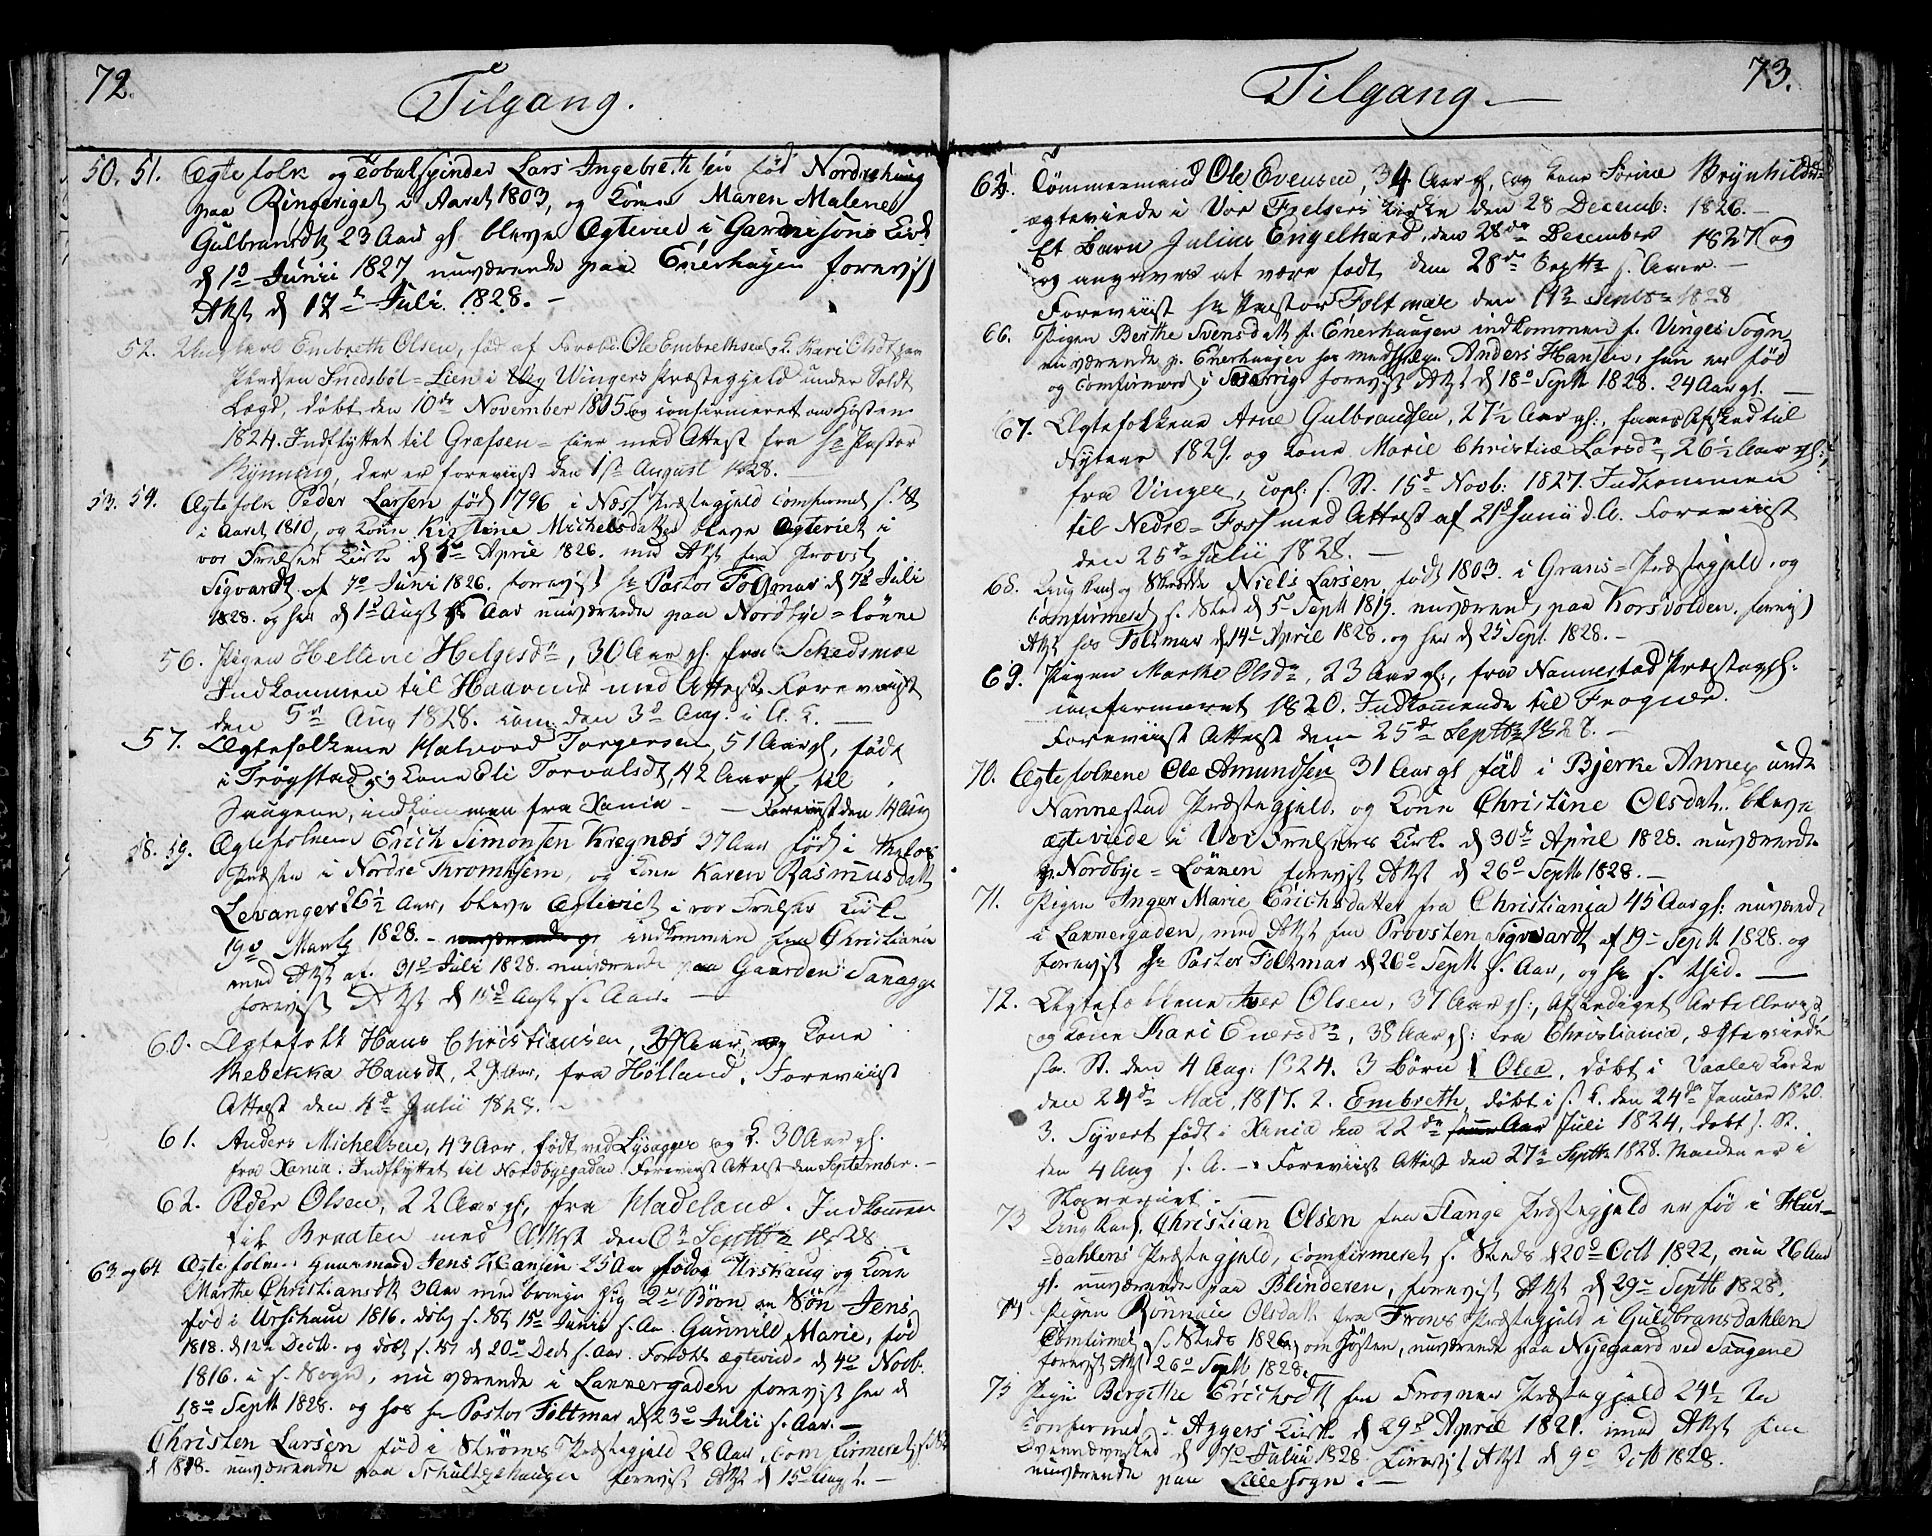 72.
Tilgang.
50. 51. Ægtefolk og Tobakspinder Lars Ingebrethsen fød Nordrehoug
paa Ringeriget i Aaret 1803, og Kone Maren Malene
Gulbrandsdtr 23 Aar gl. bleve Ægteviet i Garnisons Kirke
d 1ste Junii 1827, nuværende paa Enerhagen forevist
Attst d 17de Juli 1828. –
52. Ungkarl Embreth Olsen, fød af Forældre Ole Embrethsen, K. Kari Olsdtr paa
Pladsen Snedsböl-Lien i Winger Præstegjeld under Soldt
Lægd, døbt den 10de November 1805 og confirmeret om Høsten
1824. Indflyttet til Græfsen-Eier med Attest fra Hr Pastor
Rynning, der er foreviist den 1ste August 1828. –
53. 54. Ægtefolk Peder Larsen født 1796 i Næss Præstegjeld Comfirmet s. St
i Aaret 1810, og Kone Kirstine Michelsdatter bleve Ægteviet i
vor Frelsers Kirke d 5te April 1826. med Attst fra Provst
Sigvardt af 7de Juni 1826. forevist Hr Pastor Foltmar d 7de Juli
1828. og her d 1ste Augst s. Aar nuværende paa Nordbye-Lønne
56. Pigen Hellene Helgesdtr, 30 Aar gl. fra Schedsmoe
Indkommen til med Attest Foreviist
den 5te Aug 1828. den 3de Aug.
57. Ægtefolkene Halvord Torgersen, 51 Aar gl, født
i Trøgstad, og Kone Eli Torvalsdt, 42 Aar gl, til
Saugene, indkommen fra Xania – – Foreviist den 14 Aug
58. 59. Ægtefolkene Erich Simonsen Kregnæs 37 Aar født i Melhus
Præsten i Nordre Thromhjem, og Kone Karen Rasmusdatt
Levanger 26½ Aar, bleve Ægteviet i vor Frelsers Kirke
19de Marts 1828. – indkommen fra Christiania
med Attst af 31te Juli 1828. nuværende paa Gaarden Tanagge
forevist Attst d 15de Augst s. Aar. –
60. Ægtefolk Hans Christiansen, Aar, og Kone
Rebekka Hansdt, 29 Aar, fra Holland. Foreviist
Attest den 4de Julii 1828. –
61. Anders Michelsen, 43 Aar, født ved Lysager og K. 30 Aar gl.
fra Xania. Indflyttet til Nordbyegaden. Foreviist Attest den September. –
62. Peder Olsen, 22 Aar gl, fra Hadeland. Indkommen
til Braaten med Attst den 6te Septbr 1828
63 og 64 Ægtefolkene Jens Hansen 25 Aar født Urskaug og Kone
Marthe Christiansdtr 3 Aar med bringer sig 2de Børn en Søn Jens
fød i Urschaug 1816. døbt s. St 15de Junii s. Aar. Gunnild Marie, fød
1818. d 12te Decbr. og døbt s. St d 20de Decb s. Aar. Forældre ægteviede d 4de Novb.
1816. i s. Sogn, nuværende i Lannergaden forevist her d
18de Septb 1828. og hos Hr Pastor Foltmar d 23de Julii s. Aar. –
Christen Larsen fød i Strøms Præstegjeld 28 Aar, comfirmeret s. St
d 1818. nuværende paa Schultzehaugen forevist Attst d 15de Augst. –
73.
Tilgang. –
65. Tømmermand Ole Evensen, 34 Aar gl, og Kone Sørine Brynhildsd
ægteviede i Vor Frelsers Kirke den 28 Decemb: 1826. –
Et Barn Julius Engelhard, den 28de December 1827 og
og angives at være født den 28de Septbr s. Aar. –
Foreviist Hr Pastor Foltmar den 11te Septbr 1828
66. Pigen Berthe Svensdatt p. Enerhaugen indkommen f. Vinges Sogn,
nuværende p. Enerhaugen hos Anders Hansen, hun er fød
og Comfirmered i Sverrig forevist Attst d 18de Septb 1828. 24 Aar gl.
67. Ægtefolkene Arne Gulbrandsen, 27½ Aar gl:, faaer Afsked til
Nytaar 1829. og Kone Marie Christine Larsdr, 26½ Aar gl:,
fra Vinger, copl: s. St. 15de Novb: 1827. Indkommen
til Nedre-Foss med Attest af 21de Junii d. A. Foreviist
den 25de Julii 1828. –
68. Ung Karl og Skrædder Niels Larsen, født 1803. i Grans-Præstegjeld, og
Comfirmered s. Sted d 5te Septb 1819. nuværende paa Korsvolden, forevist
Attst hos Foltmar d 14de April 1828. og her d 25 Sept. 1828. –
69. Pigen Marthe Olsdr, 23 Aar gl:, fra Nannestad Præstegjl:
confirmeret 1820. Indkommende til Frogner.
Foreviist Attest den 25de Septbr 1828. –
70. Ægtefolkene Ole Amundsen 31 Aar gl fød i Bjerke Annex under
Nannestad Præstegjeld, og Kone Christine Olsdat. bleve
ægteviede i Vor Frelseres Kirke d 30te April 1828. nuværende
p. Nordbye-Lønnen forevist Attst d 26de Septb 1828. –
71. Pigen Inger Marie Erichsdatter fra Christiania 45 Aar gl: nuværende
i Lannergaden, med Attst fra Provsten Sigwardt af 19de Septb 1828. og
forevist Hr Pastor Foltmar d 26de Septb s. Aar, og her s. tiid. –
72. Ægtefolkene Iver Olsen, 37 Aar gl:, Afskediget Artillerist
og Kone Kari Enersdr, 38 Aar gl: fra Christiania, ægteviede
s. St. den 4 Aug: 1824. 3 Børn 1 Olea, døbt i Vaaler Kirke
den 24de Mai, 1817. 2. Embreth, døbt i s. K. den 24de Januar 1820.
3. Syvert født i Xania den 22de Juli 1824, døbt s. St.
den 4 Aug s. A. – Foreviist Attest den 27de Septbr 1828. Manden er i
Slaveriet. –
73 Ung Karl Christian Olsen fra Stange Præstegjeld er fød i Hur-
dahlens Præstegjeld, Comfirmeret s. Steds d 20de Octb 1822, nu 26 Aar
gl. nuværende paa Blinderen, forevist Attst d 29de Septb 1828.
74 Pigen Rönnaue Olsdatt fra Frons Præstegjeld i Guldbransdahlen
Comfirmet s. Steds 1826, om Høsten, nuværende paa Nyegaard ved Saugene
forevist Attst 26de Septb 1828.
75 Pige Bergethe Erichsdtt fra Frogner Præstegjeld 24½ Aar
Confirmed i Aggers Kirke d 29de April 1821. med Attst fra
d 17de Julii 1828. Attst d 9de Octb 1828.
nuværende paa Lille Sogn. –